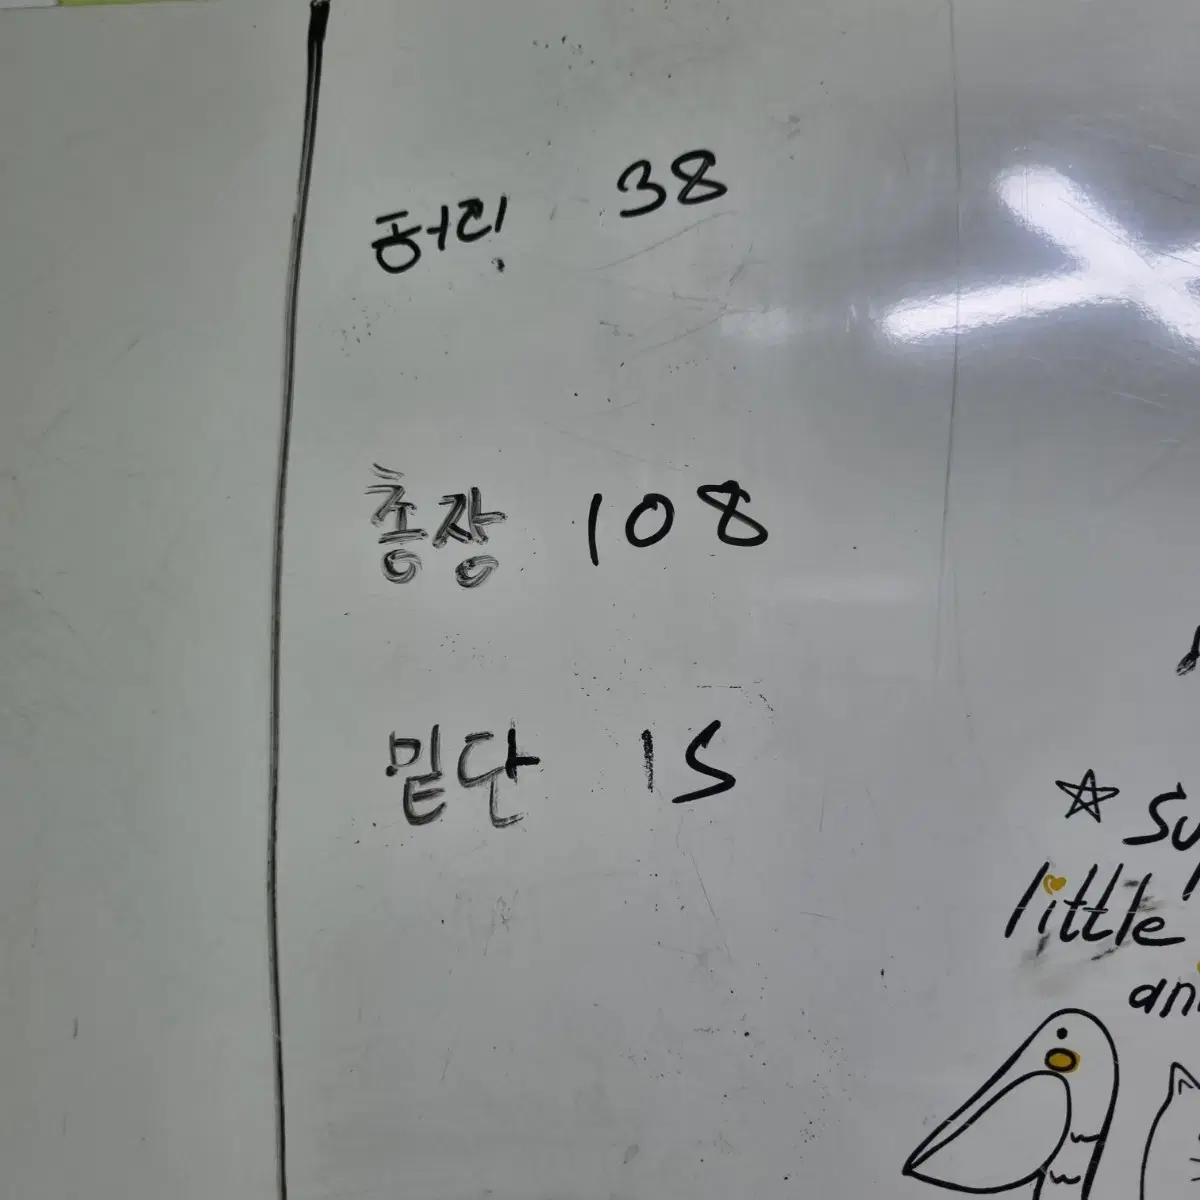 허리 38
총장 108
밑단 15
☆ Su
little
an